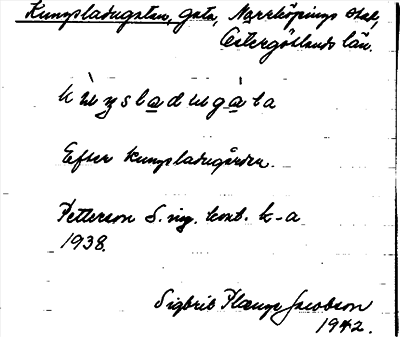 Kungsladugatan, gata, Norrköpings stad,
Östergötlands län.
Efter Kungsladugården.
Petterson S. ing. kont. k-a
1938.
Sigbrit Plænge Jacobson
1942.